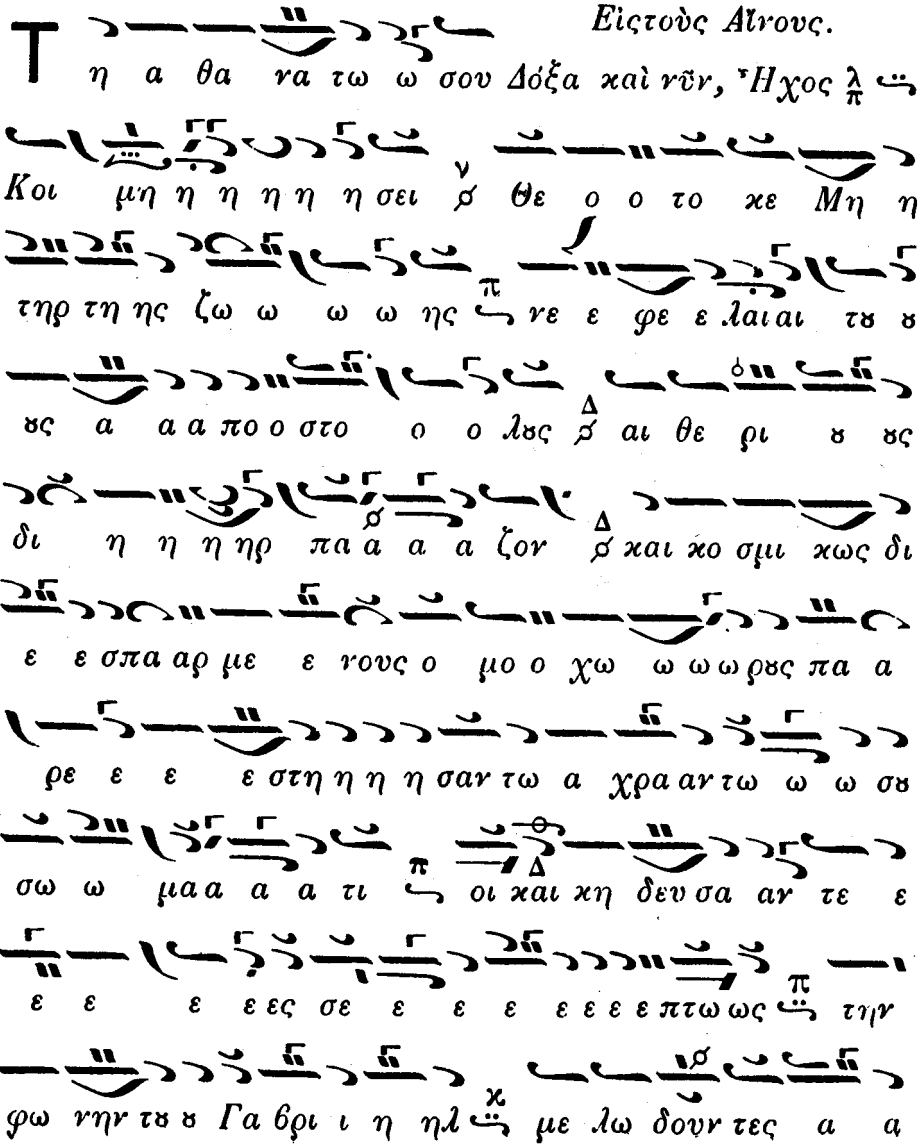 Εἰςτοὺς Αἴνους.
Τ η α θα να τω ω σου Δόξα καὶ νῦν, Ἦχος λ π
Κοι μη η η η η η σει ν Θε ο ο το κε Μη η
τηρ τη ης ζω ω ω ω ης π νε ε φε ε λαι αι τȣ ȣ
ȣς α α α πο ο στο ο ο λȣς Δ αι θε ρι ȣ ȣς
δι η η η ηρ πα α α α ζον Δ και κο σμι κως δι
ε ε σπα αρ με ε νους ο μο ο χω ω ω ω ρȣς πα α
ρε ε ε ε στη η η η σαν τω α χρα αν τω ω ω σȣ
σω ω μα α α α τι π οι Δ και κη δευ σα αν τε ε
ε ε ε ε ες σε ε ε ε ε ε ε ε πτω ως π την
φω νην τȣ ȣ Γα βρι ι η ηλ κ με λω δουν τες α α